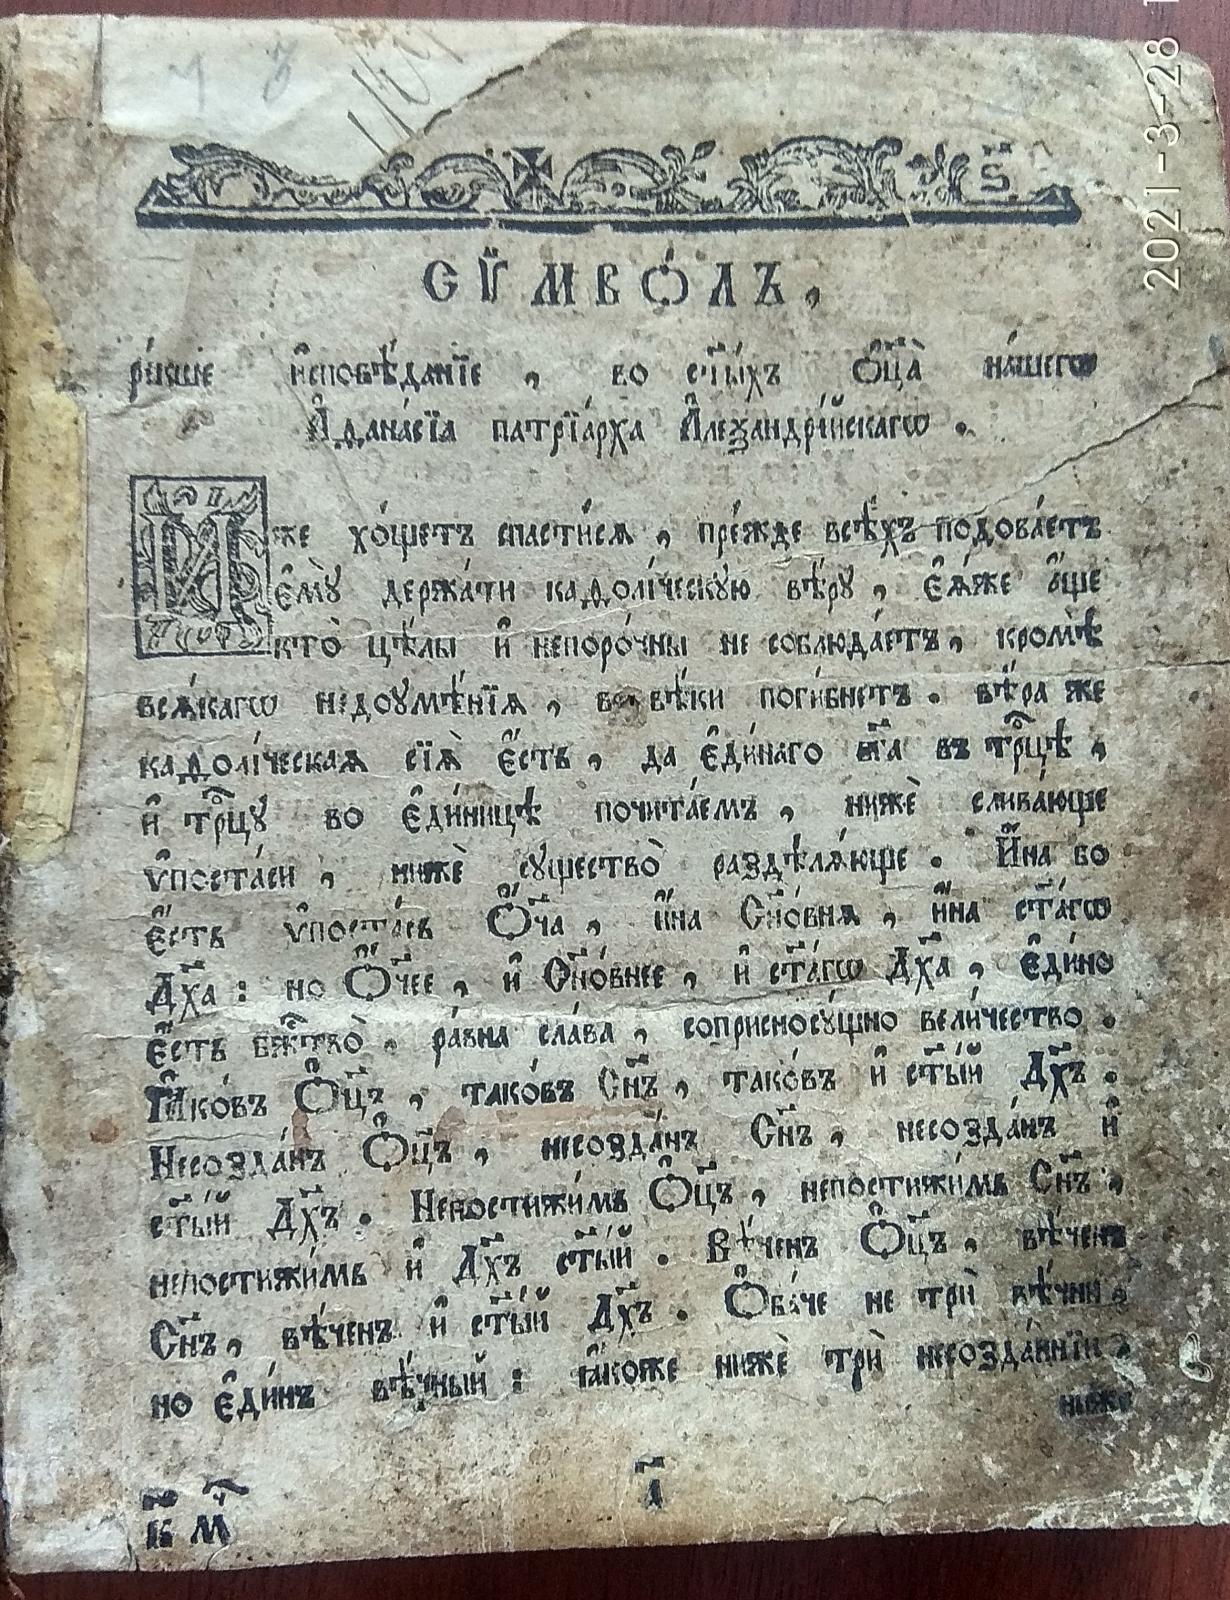 ѕ҃
СѴ́МВѠЛЪ,
ре́кше и҆сповѣ́данїе , во ст҃ы́хъ Ѻ҆ц҃а̀ на́шегѡ
А҆ѳана́сїа патрїа́рха А҆леѯандрі́йскагѡ .
И҆́же хо́щетъ спасти́сѧ , пре́жде всѣ́хъ подоба́етъ
є҆мꙋ̀ держа́ти каѳоли́ческꙋю вѣ́рꙋ , є҆ѧ́же а҆́ще
кто̀ цѣ́лы и҆ непоро́чны не соблюда́етъ , кромѣ̀
всѧ́кагѡ недоꙋмѣ́нїѧ , во вѣ́ки поги́бнетъ . вѣ́ра же
каѳоли́ческаѧ сїѧ̀ є҆́сть , да є҆ди́наго бг҃а въ трⷪ҇цѣ ,
и҆ трⷪ҇цꙋ во є҆ди́ницѣ почита́емъ , нижѐ слива́юще
ѵ҆поста́си , нижѐ сꙋщество̀ раздѣлѧ́юще . И҆́на бо
є҆́сть ѵ҆поста́сь Ѻ҆́ч҃а , и҆́на Сн҃о́внѧ , и҆́на ст҃а́гѡ
Дх҃а : но Ѻ҆́ч҃ее , и҆ Сн҃о́внее , и҆ ст҃а́гѡ Дх҃а , є҆ди́но
є҆́сть бж҃тво̀ , ра́вна сла́ва , соприсносꙋ́щно вели́чество .
Ꙗ҆ко́въ Ѻ҆ц҃ъ , тако́въ Сн҃ъ , тако́въ и҆ ст҃ы́й Дх҃ъ .
Несозда́нъ Ѻ҆ц҃ъ , несозда́нъ Сн҃ъ , несозда́нъ и҆
ст҃ы́й Дх҃ъ . Непостижи́мъ Ѻ҆ц҃ъ , непостижи́мъ Сн҃ъ ,
непостижи́мъ и҆ Дх҃ъ ст҃ы́й . Вѣ́ченъ Ѻ҆ц҃ъ , вѣ́ченъ
Сн҃ъ , вѣ́ченъ и҆ ст҃ы́й Дх҃ъ . Ѻ҆ба́че не трѝ вѣ́чни ,
но є҆ди́нъ вѣ́чный : ꙗ҆́коже нижѐ трѝ несозда́ннїи ,
ниже
к҃ м҃ а҃
2021-3-28